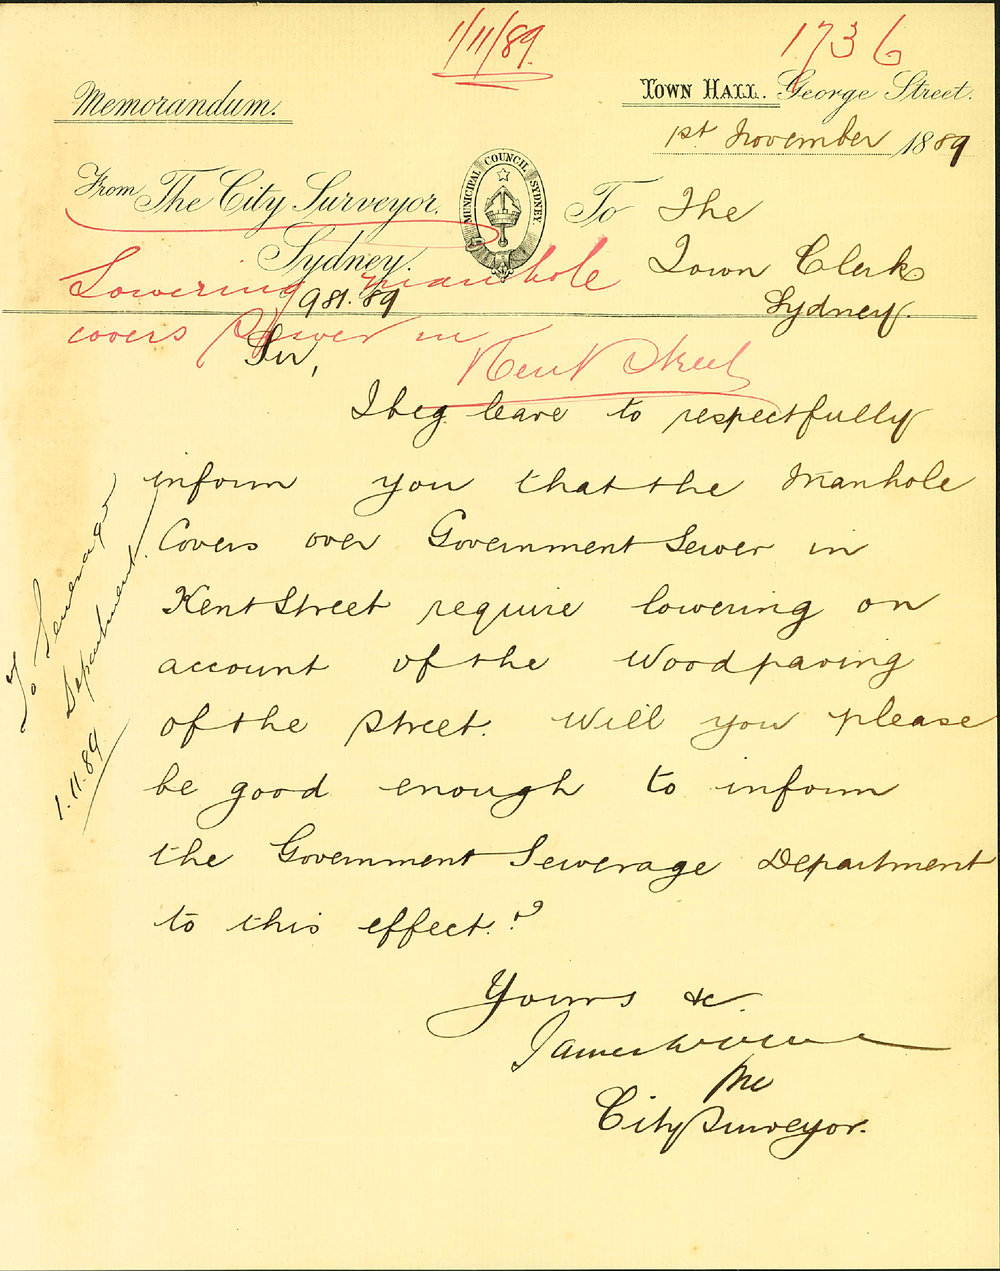 1/11/89.
1736
Memorandum.
Town Hall. George Street.
1st November 1889
From The City Surveyor,
Sydney.
MUNICIPAL COUNCIL SYDNEY.
To The
Town Clerk
Sydney.
Lowering manhole
981.89
covers Sewer in
Kent Street
Sir,
I beg leave to respectfully
inform you that the Manhole
Covers over Government Sewer in
Kent Street require lowering on
account of the Woodpaving
of the street. Will you please
be good enough to inform
the Government Sewerage Department
to this effect.?
To Sewerage
Department.
1.11.89
Yours &c.
James
City Surveyor.